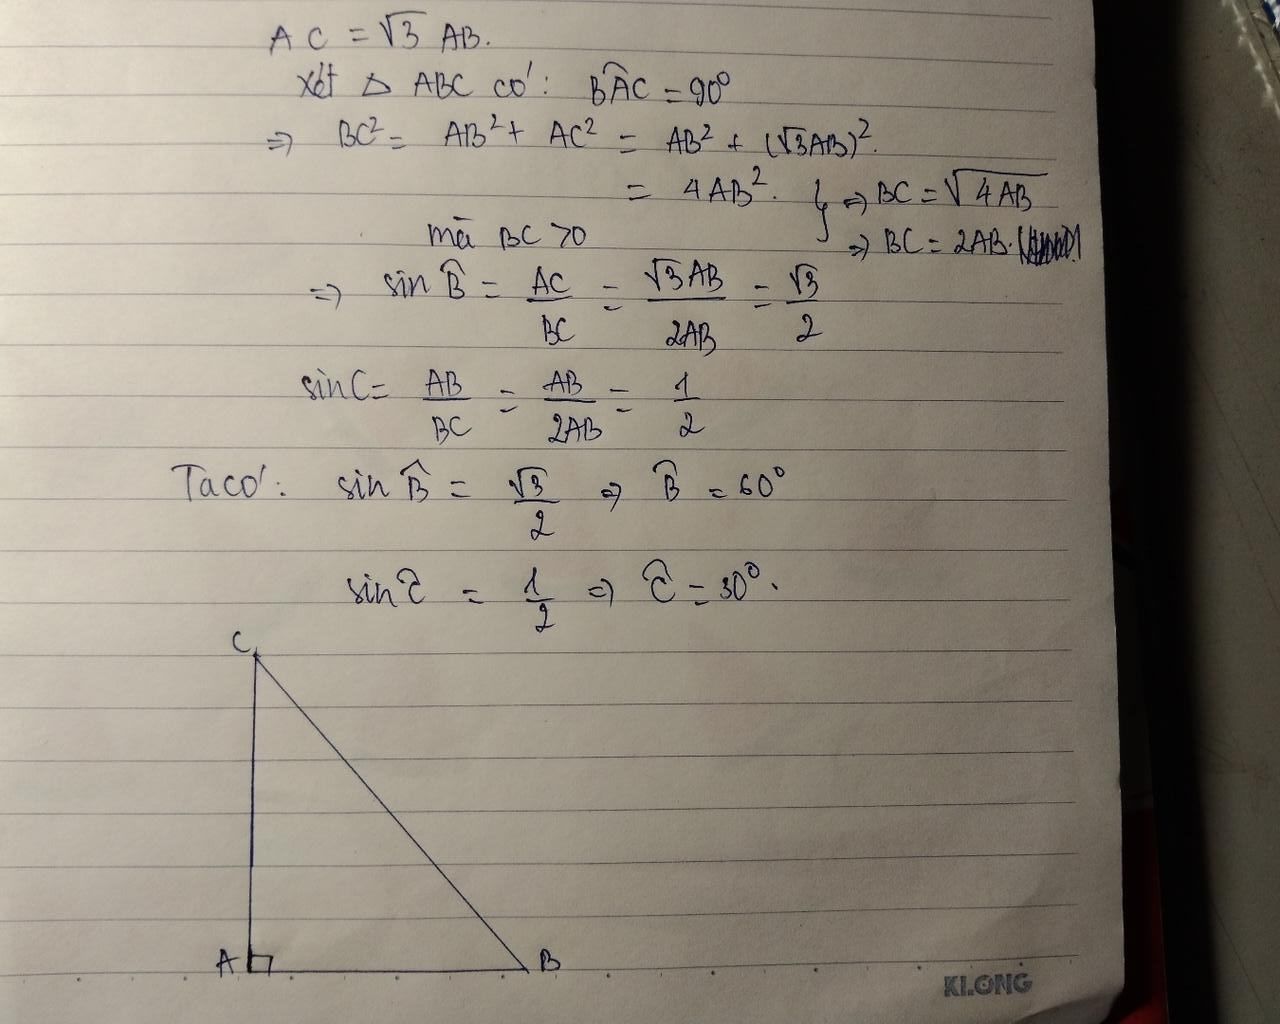 AC = √3 AB.
Xét △ ABC có: BÂC = 90°
⇒ BC² = AB² + AC² = AB² + (√3AB)².
= 4AB². } ⇒ BC = √4AB
mà BC > 0 ⇒ BC = 2AB.
⇒ sin B̂ = AC/BC = √3AB/2AB = √3/2
sin C = AB/BC = AB/2AB = 1/2
Ta có: sin B̂ = √3/2 ⇒ B̂ = 60°
sin Ĉ = 1/2 ⇒ Ĉ = 30°.
C
A B
KLONG